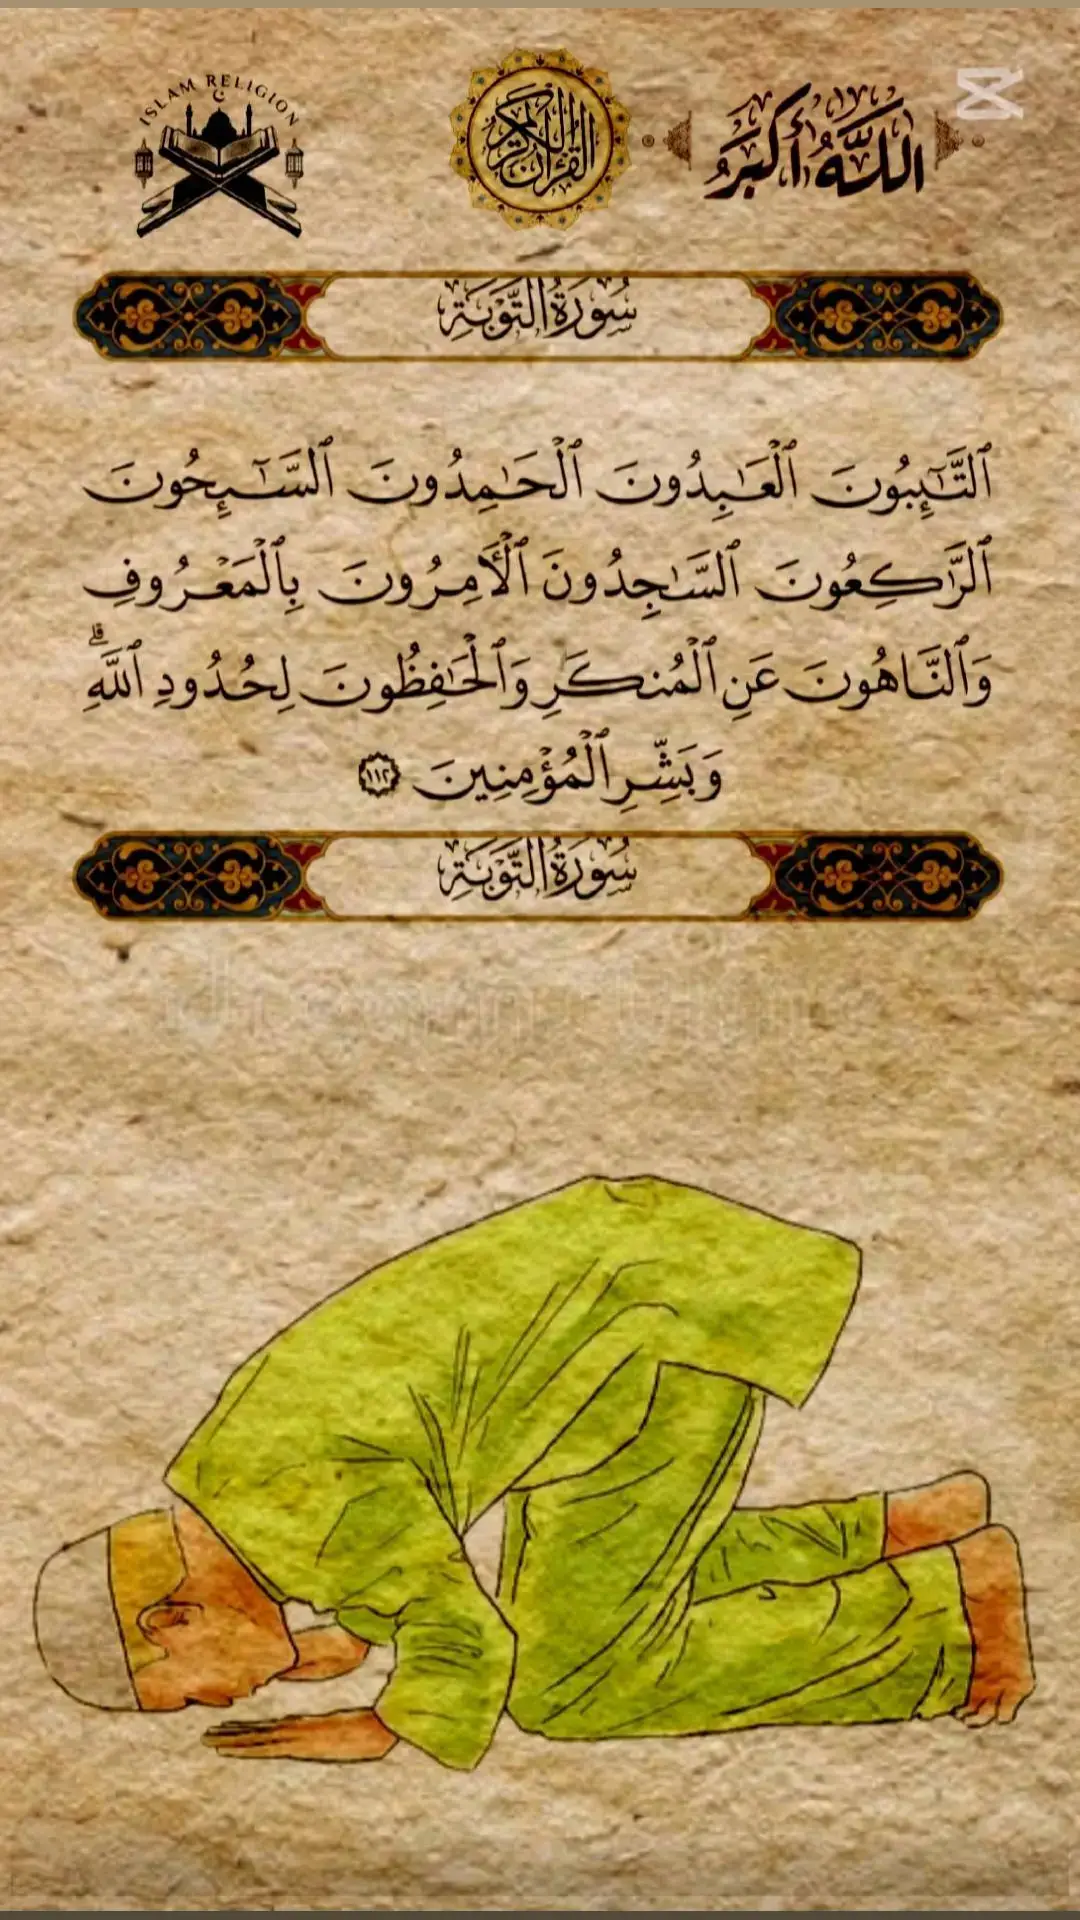 ISLAM RELIGION
القرآن الكريم
اللَّهُ أَكْبَرُ
سُورَةُ التَّوْبَةِ
ٱلتَّـٰٓئِبُونَ ٱلْعَـٰبِدُونَ ٱلْحَـٰمِدُونَ ٱلسَّـٰٓئِحُونَ
ٱلرَّٰكِعُونَ ٱلسَّـٰجِدُونَ ٱلْـَٔامِرُونَ بِٱلْمَعْرُوفِ
وَٱلنَّاهُونَ عَنِ ٱلْمُنكَرِ وَٱلْحَـٰفِظُونَ لِحُدُودِ ٱللَّهِ ۗ
وَبَشِّرِ ٱلْمُؤْمِنِينَ ١١٢
سُورَةُ التَّوْبَةِ